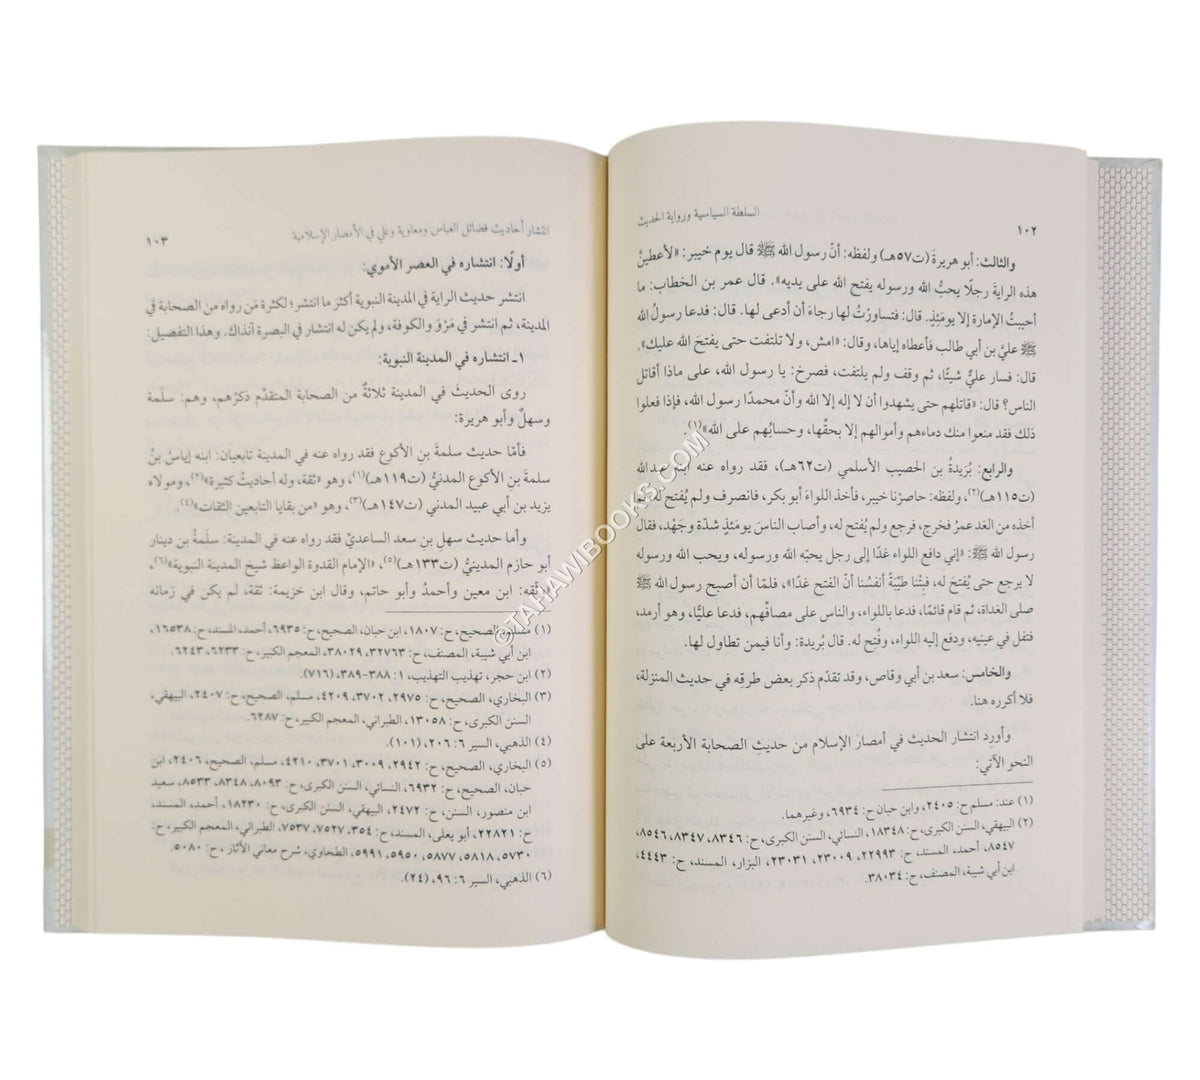 السلطة السياسية ورواية الحديث
١٠٢
والثالث: أبو هريرةَ (ت٥٧هـ) ولفظه: أنّ رسول الله ﷺ قال يوم خيبر: «لأعطينَّ
هذه الرايةَ رجلًا يحبُّ الله ورسوله يفتح الله على يديه». قال عمر بن الخطاب: ما
أحببتُ الإمارة إلا يومَئذٍ. قال: فتساورْتُ لها رجاءَ أن أدعى لها. قال: فدعا رسولُ الله
ﷺ عليَّ بن أبي طالب فأعطاه إياها، وقال: «امش، ولا تلتفت حتى يفتحَ الله عليك».
قال: فسار عليٌّ شيئًا، ثم وقف ولم يلتفت، فصرخ: يا رسول الله، على ماذا أقاتل
الناس؟ قال: «قاتلهم حتى يشهدوا أن لا إله إلا الله وأنّ محمدًا رسول الله، فإذا فعلوا
ذلك فقد منعوا منك دماءهم وأموالهم إلا بحقِّها، وحسابُهم على الله»(١).
والرابع: بُرَيدةُ بن الحصيب الأسلمي (ت٦٢هـ)، فقد رواه عنه ابنه عبدالله
(ت١١٥هـ)(٢)، ولفظه: حاصرْنا خيبر، فأخذ اللواءَ أبو بكر، فانصرف ولم يُفتح له، ثم
أخذه من الغد عمرُ فخرج، فرجع ولم يُفتح له، وأصاب الناسَ يومَئذٍ شدّة وجَهْد، فقال
رسول الله ﷺ: «إني دافع اللواء غدًا إلى رجل يحبّه الله ورسوله، ويحب الله ورسوله
لا يرجع حتى يُفتحَ له، فبِتْنا طيّبةً أنفسُنا أنّ الفتح غدًا»، فلمّا أن أصبح رسول الله ﷺ
صلى الغداة، ثم قام قائمًا، فدعا باللواء، والناس على مصافّهم، فدعا عليًّا، وهو أرمد،
فتفل في عينيه، ودفع إليه اللواء، وفُتِح له. قال بُريدة: وأنا فيمن تطاول لها.
والخامس: سعد بن أبي وقاص، وقد تقدّم ذكر بعض طرقِه في حديث المنزلة،
فلا أكرره هنا.
وأورِد انتشار الحديث في أمصار الإسلام من حديثِ الصحابة الأربعة على
النحو الآتي:
(١) عند: مسلم ح: ٢٤٠٥، وابن حبان ح: ٦٩٣٤، وغيرهما.
(٢) البيهقي، السنن الكبرى، ح: ١٨٣٤٨، النسائي، السنن الكبرى، ح: ٨٣٤٦، ٨٣٤٧، ٨٥٤٦،
٨٥٤٧، أحمد، المسند، ح: ٢٢٩٩٣، ٢٣٠٠٩، ٢٣٠٣١، البزار، المسند، ح: ٤٤٤٣،
ابن أبي شيبة، المصنف، ح: ٣٨٠٣٤.
انتشار أحاديث فضائل العباس ومعاوية وعلي في الأمصار الإسلامية
١٠٣
أولًا: انتشاره في العصر الأموي:
انتشر حديث الراية في المدينة النبوية أكثرَ ما انتشر؛ لكثرة مَن رواه من الصحابة في
المدينة، ثم انتشر في مَرْوَ والكوفة، ولم يكن له انتشار في البصرة آنذاك. وهذا التفصيل:
١ـ انتشاره في المدينة النبوية:
روى الحديثَ في المدينة ثلاثةٌ من الصحابة المتقدِّم ذكرُهم، وهم: سلَمة
وسهلٌ وأبو هريرة:
فأمّا حديث سلمةَ بنِ الأكوع فقد رواه عنه في المدينة تابعيان: ابنه إياسُ بنُ
سلمةَ بنِ الأكوع المدنيُّ (ت١١٩هـ)(١)، وهو «ثقة، وله أحاديثُ كثيرة»(٢)، ومولاه
يزيد بن أبي عبيد المدني (ت١٤٧هـ)(٣)، وهو «من بقايا التابعين الثقات»(٤).
وأما حديث سهلِ بن سعد الساعديِّ فقد رواه عنه في المدينة: سلَمةُ بن دينار
أبو حازم المدينيُّ (ت١٣٣هـ)(٥)، «الإمام القدوة الواعظ شيخ المدينة النبوية»(٦)،
وثّقه: ابن معين وأحمدُ وأبو حاتم، وقال ابن خزيمة: ثقة، لم يكن في زمانه
(١) مسلم، الصحيح، ح: ١٨٠٧، ابن حبان، الصحيح، ح: ٦٩٣٥، أحمد، المسند، ح: ١٦٥٣٨،
ابن أبي شيبة، المصنف، ح: ٣٢٧٦٣، ٣٨٠٢٩، المعجم الكبير، ح: ٦٢٣٣، ٦٢٤٣.
(٢) ابن حجر، تهذيب التهذيب، ١: ٣٨٨-٣٨٩، (٧١٦).
(٣) البخاري، الصحيح، ح: ٢٩٧٥، ٣٧٠٢، ٤٢٠٩، مسلم، الصحيح، ح: ٢٤٠٧، البيهقي،
السنن الكبرى، ح: ١٣٠٥٨، الطبراني، المعجم الكبير، ح: ٦٢٨٧.
(٤) الذهبي، السير ٦: ٢٠٦، (١٠١).
(٥) البخاري، الصحيح، ح: ٢٩٤٢، ٣٠٠٩، ٣٧٠١، ٤٢١٠، مسلم، الصحيح، ٢٤٠٦، ابن
حبان، الصحيح، ح: ٦٩٣٢، النسائي، السنن الكبرى، ح: ٨٠٩٣، ٨٣٤٨، ٨٥٣٣، سعيد
ابن منصور، السنن، ح: ٢٤٧٢، البيهقي، السنن الكبرى، ح: ١٨٢٣٠، أحمد، المسند،
ح: ٢٢٨٢١، أبو يعلى، المسند، ح: ٣٥٤، ٧٥٢٧، ٧٥٣٧، الطبراني، المعجم الكبير، ح:
٥٧٣٠، ٥٨١٨، ٥٨٧٧، ٥٩٥٠، ٥٩٩١، الطحاوي، شرح معاني الآثار، ح: ٥٠٨٠.
(٦) الذهبي، السير ٦: ٩٦، (٢٤).
©TAHAWIBOOKS.COM